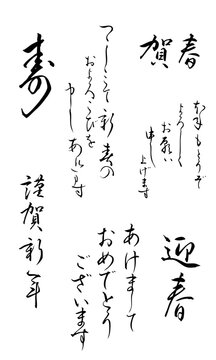 賀春
本年もどうぞ
よろしく
お願い
申し
上げます
つつしんで新春の
およろこびを
申しあげます
寿
迎春
あけまして
おめでとう
ございます
謹賀新年